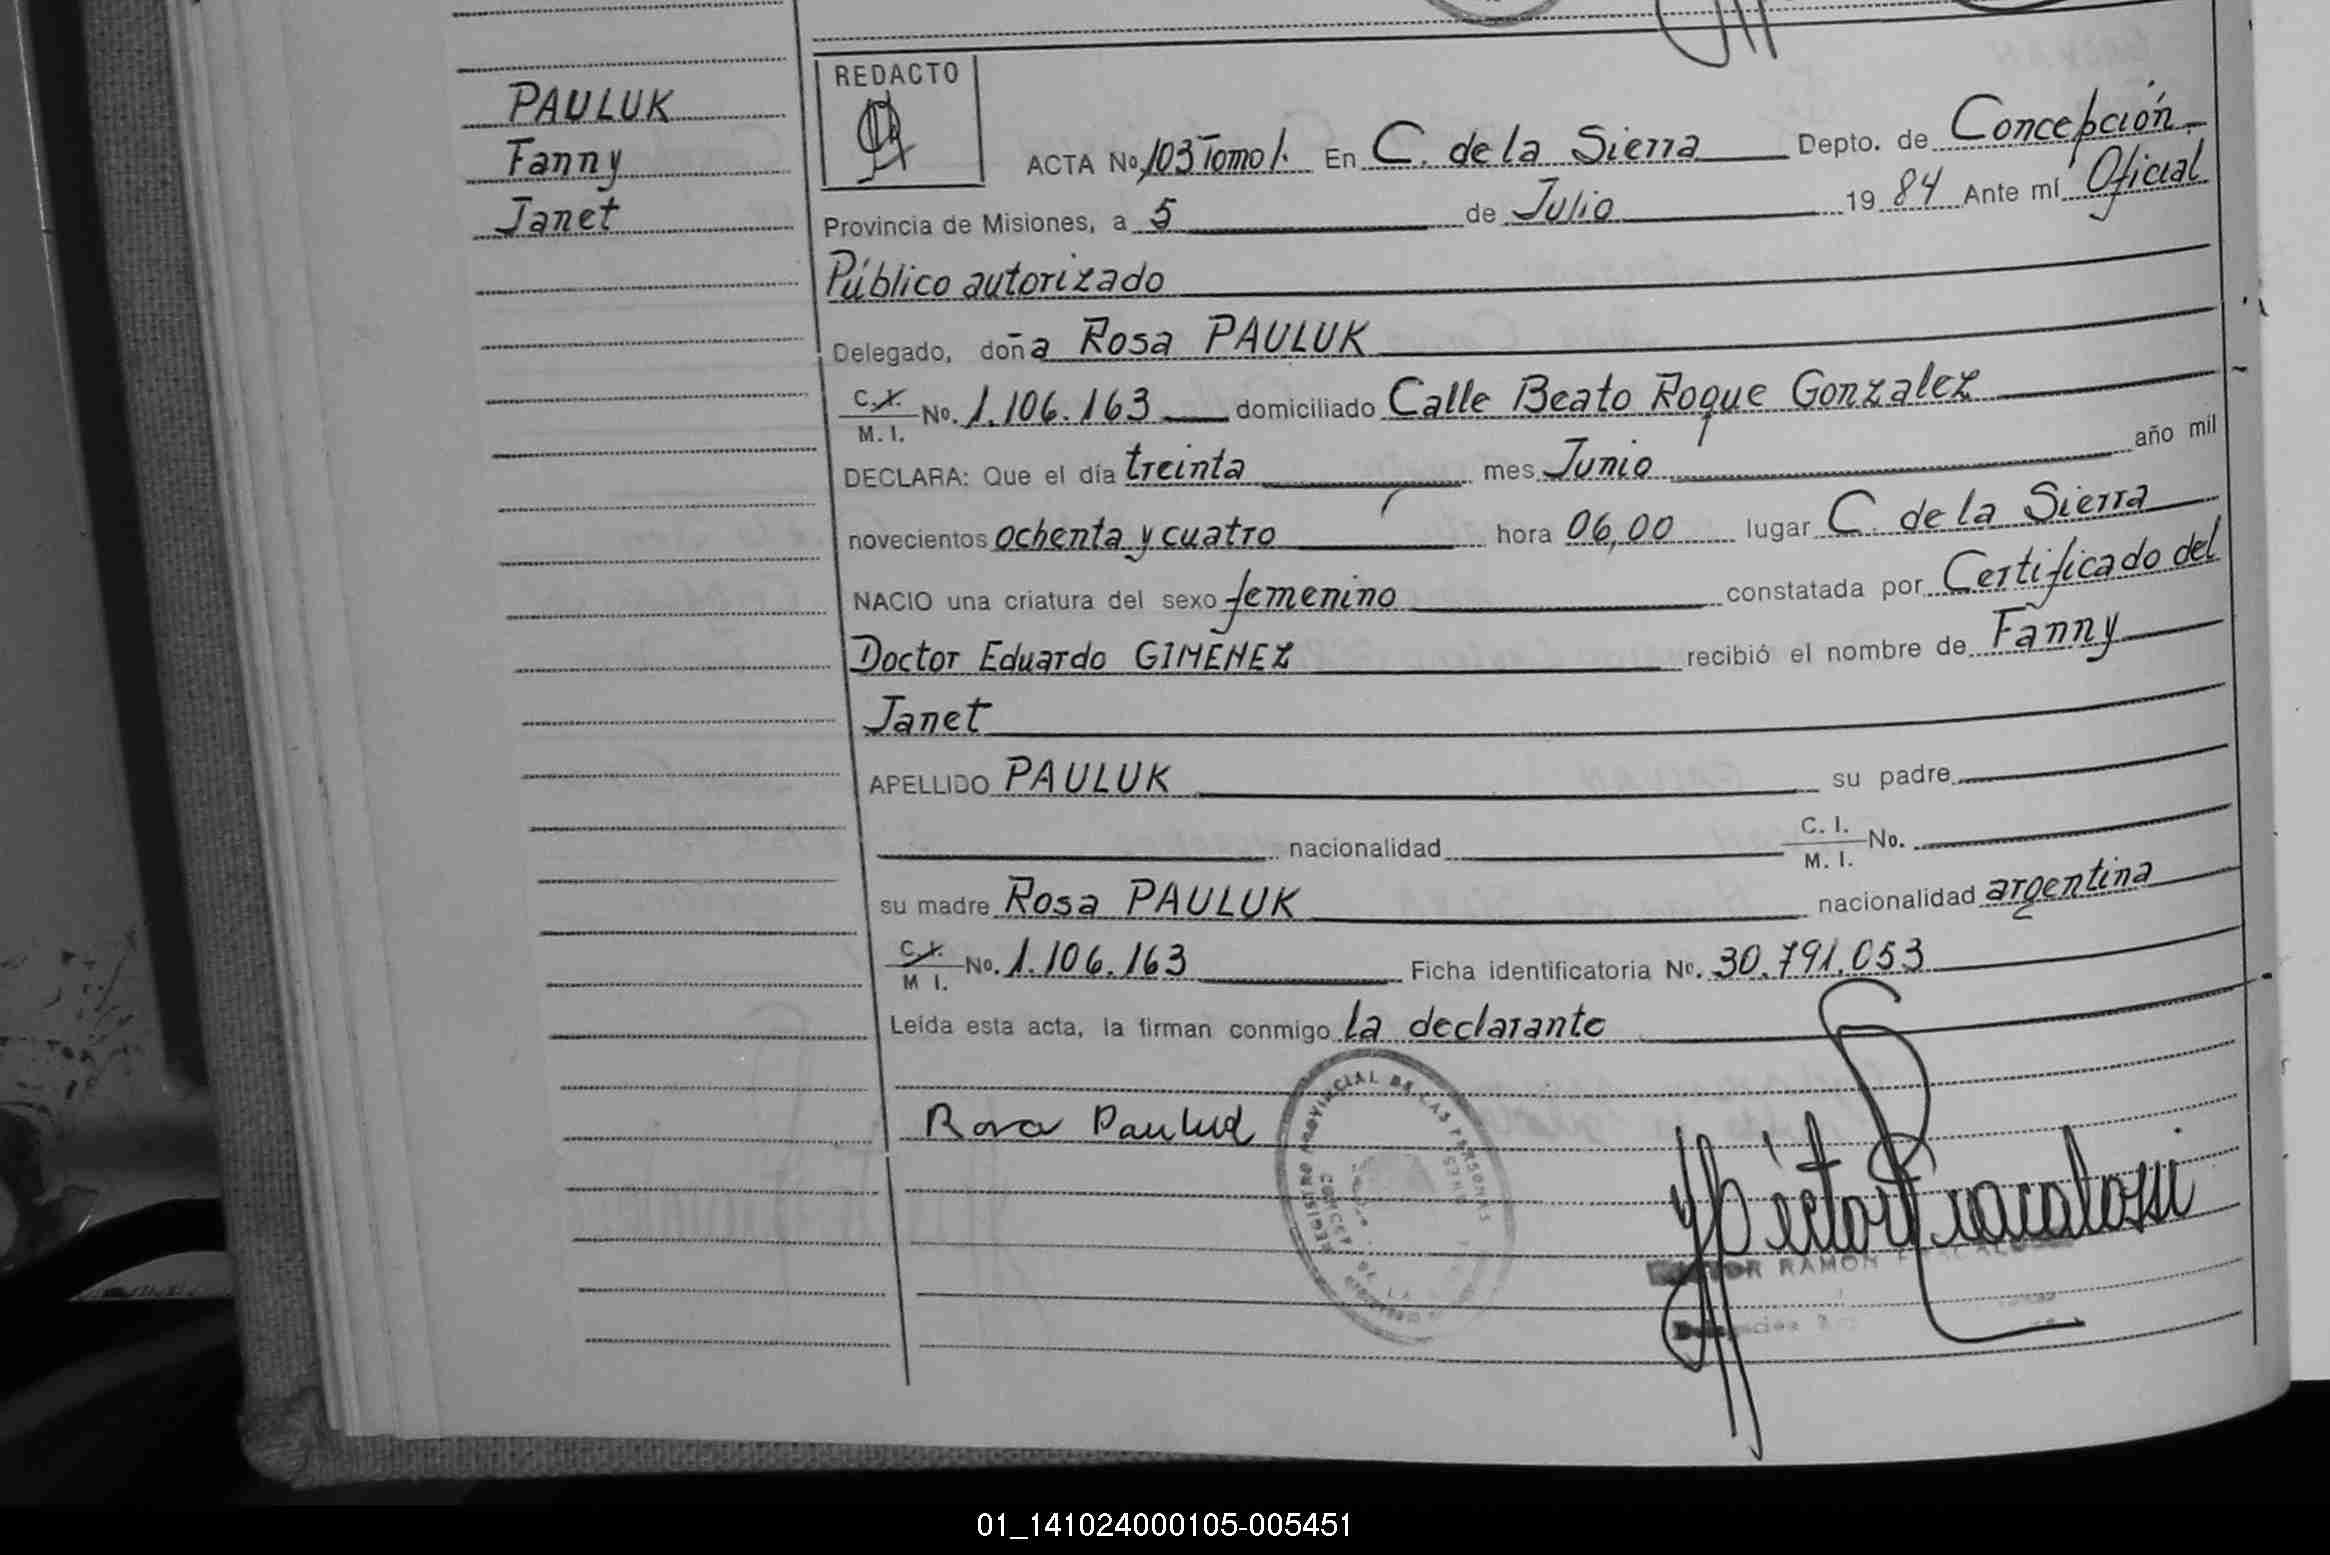 PAULUK
Fanny
Janet
REDACTO
ACTA No 103 Tomo 1. En C. de la Sierra Depto. de Concepción
Provincia de Misiones, a 5 de Julio 1984 Ante mí Oficial
Público autorizado
Delegado, doña Rosa PAULUK
C.I. M.I. No. 1.106.163 domiciliado Calle Beato Roque Gonzalez
DECLARA: Que el día treinta mes Junio año mil
novecientos ochenta y cuatro hora 06,00 lugar C. de la Sierra
NACIO una criatura del sexo femenino constatada por Certificado del
Doctor Eduardo GIMENEZ recibió el nombre de Fanny
Janet
APELLIDO PAULUK su padre
nacionalidad C. I. M. I. No.
su madre Rosa PAULUK nacionalidad argentina
C.I. M I. No. 1.106.163 Ficha identificatoria No. 30.791.053
Leída esta acta, la firman conmigo la declarante
Rosa Pauluk
REGISTRO PROVINCIAL DE LAS PERSONAS
RAMON
01_141024000105-005451